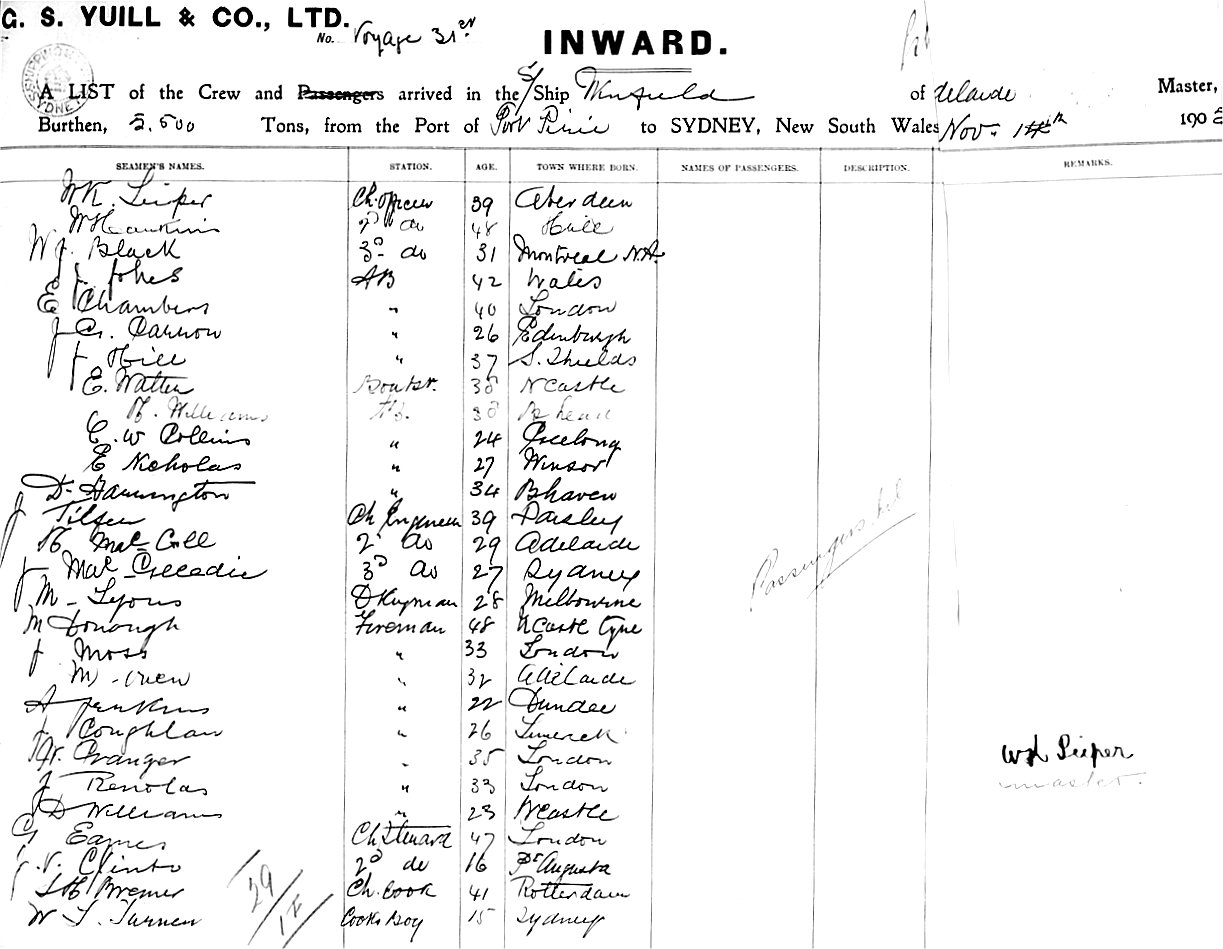 G. S. YUILL & CO., LTD.
No. Voyage 31st
INWARD.
A LIST of the Crew and Passengers arrived in the S/Ship Winfield of Adelaide Master,
Burthen, 2,500 Tons, from the Port of Port Pirie to SYDNEY, New South Wales Nov. 190
SEAMEN'S NAMES. STATION. AGE. TOWN WHERE BORN. NAMES OF PASSENGERS. DESCRIPTION. REMARKS.
Leiper Ch. Officer 39 Aberdeen
2nd do 48 Hull
W J. Black 3rd do 31 Montreal N.A.
J. Johes AB 42 Wales
E Chambers " 40 London
J G. Carrow " 26 Edinburgh
J. Hill " 37 S. Shields
E. Watten Boatsn. 38 N Castle
H. Williams AB. 38 B head
C. W Collins " 24 Geelong
E Nicholas " 27 Winsor
D. Harrington " 34 B haven
J Tilfer Ch Engineer 39 Paisley
H Mac Gill 2nd do 29 Adelaide
J Mac 3rd do 27 Sydney
M - Lyons D Keyman 28 Melbourne
M Donough Fireman 48 N Castle Tyne
J Moss " 33 London
M - Owen " 32 Adelaide
A Jenkins " 22 Dundee
J. Coughlan " 26 Limerick
W. Granger " 35 London
J. Renolas " 33 London
D Williams " 23 N Castle
G Eames Ch Steward 47 London
V. Clinto 2nd do 16 Pt Augusta
Bremer Ch. Cook 41 Rotterdam
W T. Turner Cooks Boy 15 Sydney
Passengers nil
Leiper
master.
29